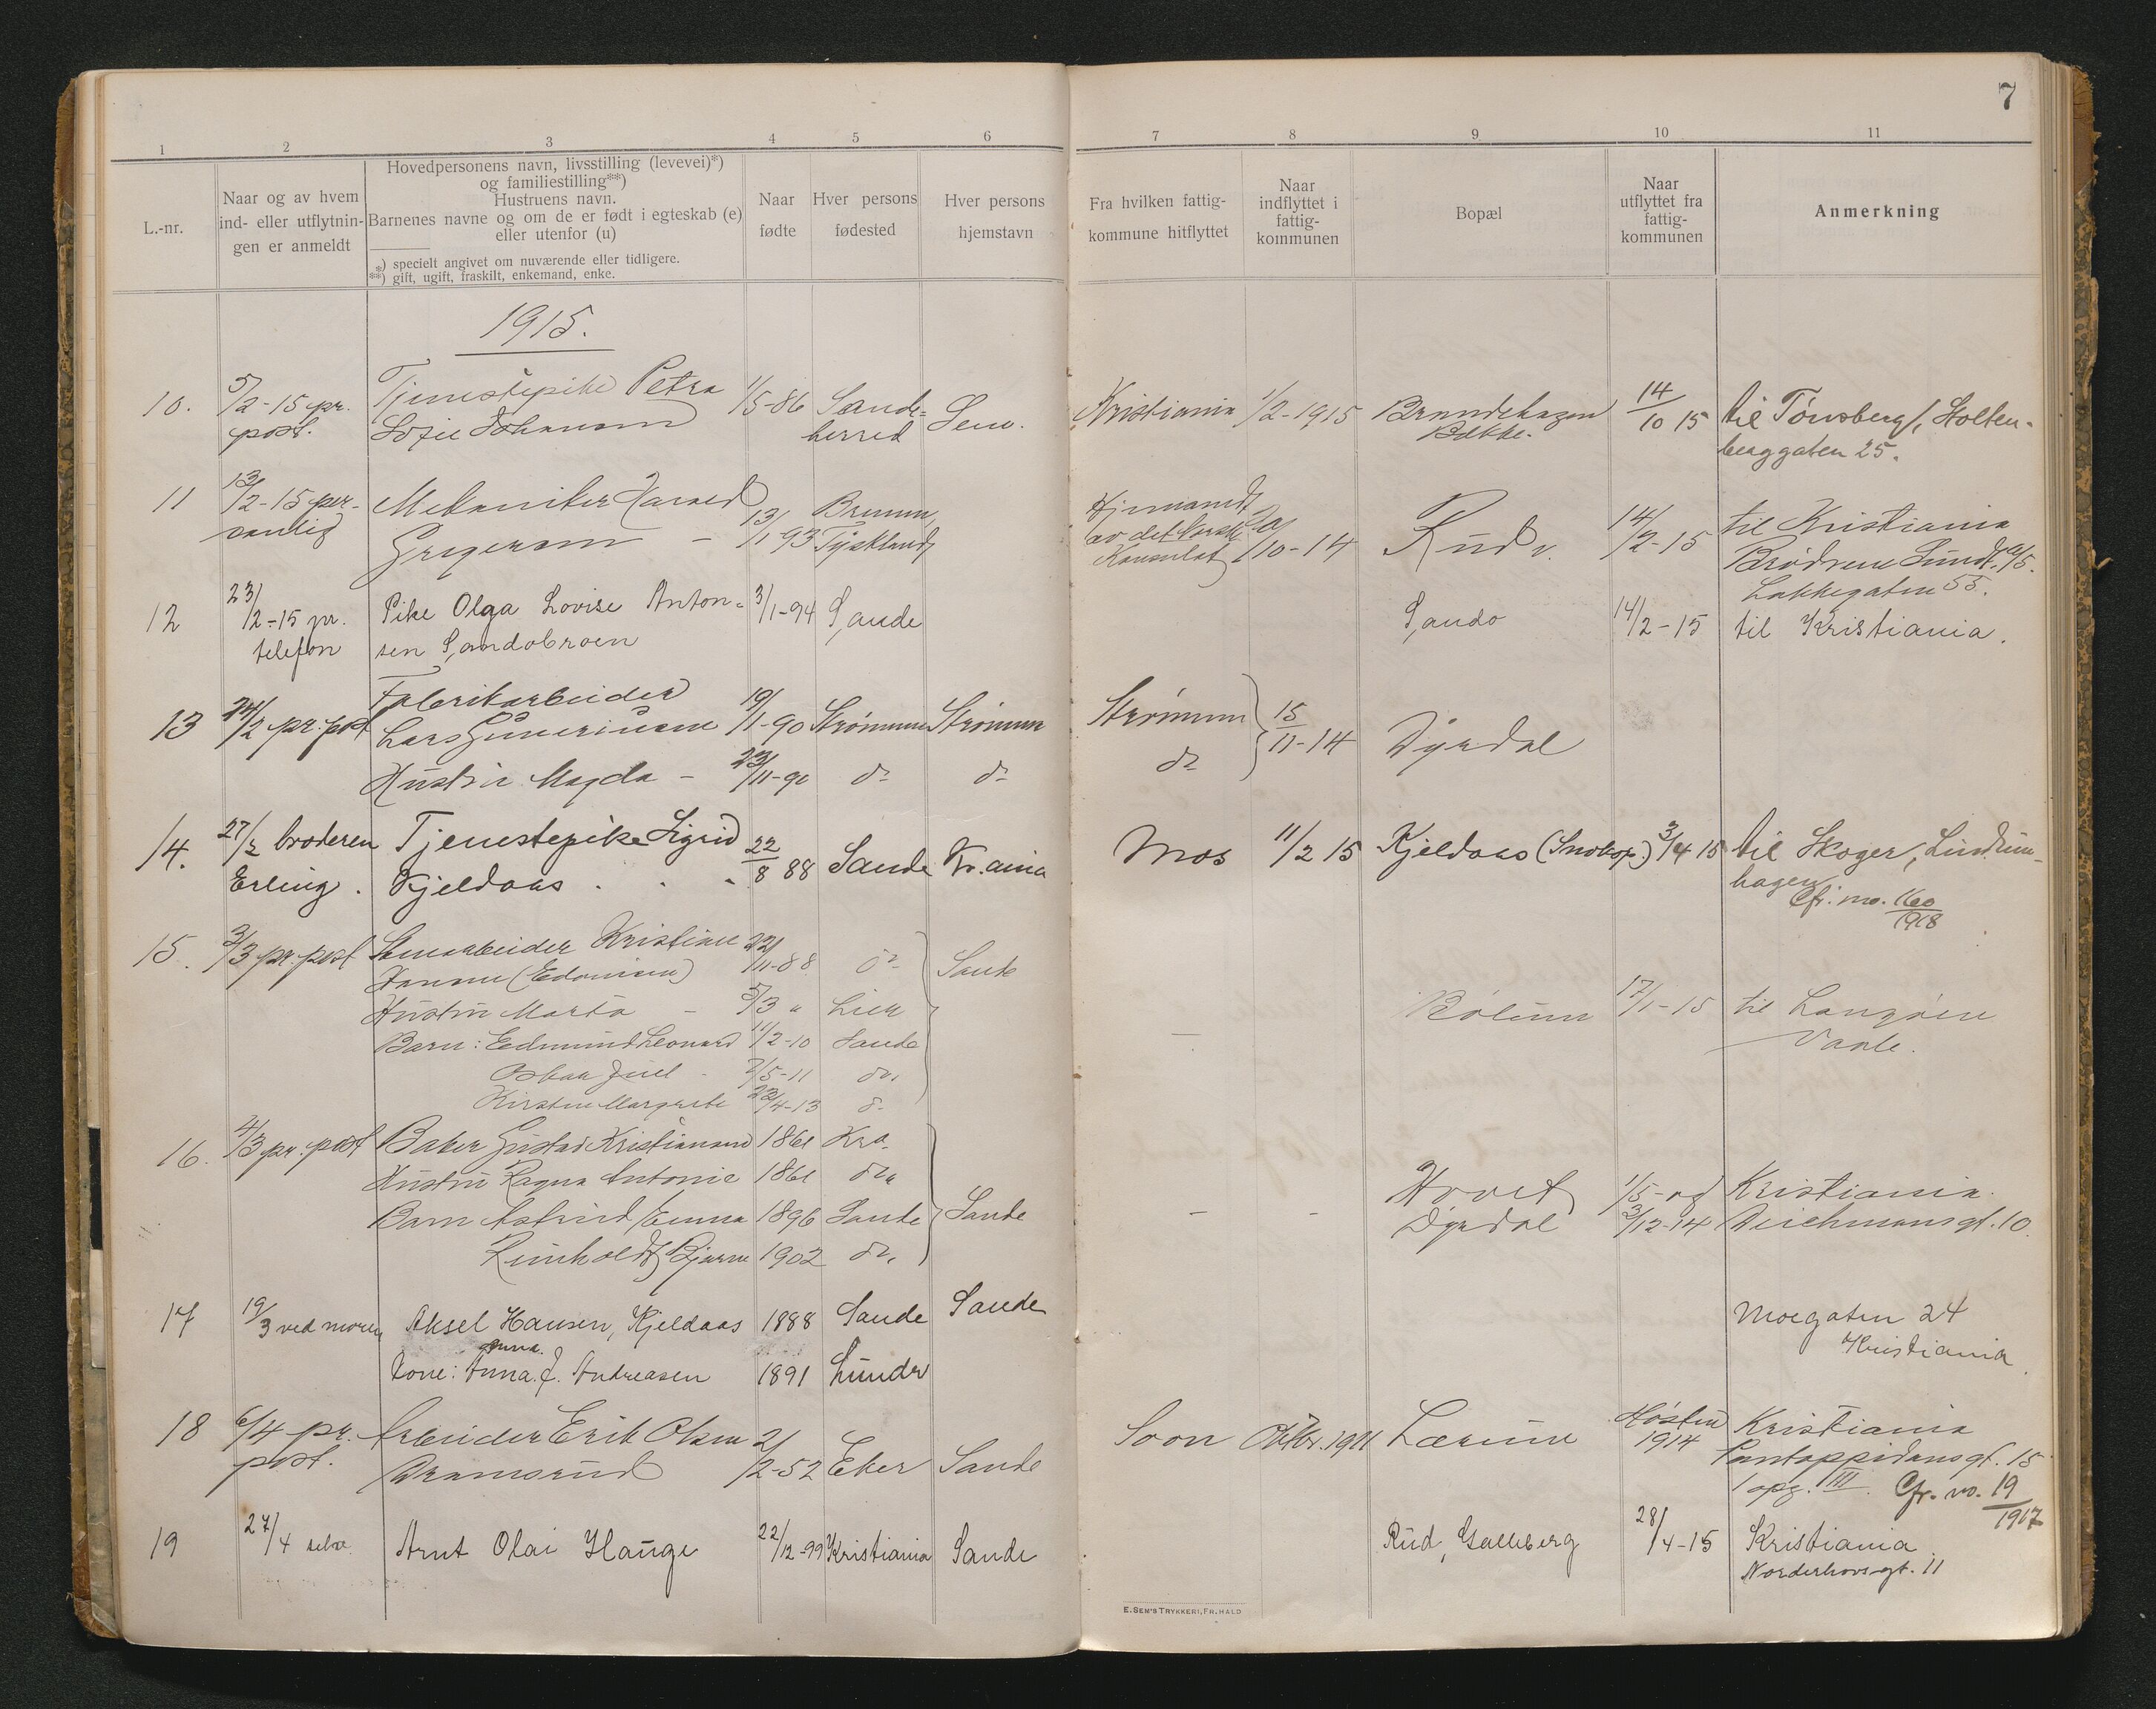 7
1 2 3 4 5 6 7 8 9 10 11
L.-nr.
Naar og av hvem
ind- eller utflytnin-
gen er anmeldt
Hovedpersonens navn, livsstilling (levevei)*)
og familiestilling**)
Hustruens navn.
Barnenes navne og om de er født i egteskab (e)
eller utenfor (u)
*) specielt angivet om nuværende eller tidligere.
**) gift, ugift, fraskilt, enkemand, enke.
Naar
fødte
Hver persons
fødested
Hver persons
hjemstavn
Fra hvilken fattig-
kommune hitflyttet
Naar
indflyttet i
fattig-
kommunen
Bopæl
Naar
utflyttet fra
fattig-
kommunen
Anmerkning
1915.
10. 5/2-15 pr. Tjenestepike Petra 1/5-86 Sande= Sem. Kristiania 1/2-1915 14/10 15 til Tønsberg, Holten-
post. herred Bakke. berggaten 25.
11 13/2-15 per- Mekaniker Harald 13/1 93 14/2-15 til Kristiania
sonlig Tyskland 10-14 Rud v. Brødrene Sundt a/s.
Konsulat Lakkegaten 55.
12 23/2-15 pr. Pike Olga Lovise Anton= 3/1-94 Sande Sande 14/2-15 til Kristiania.
telefon sen Sandebroen
13 24/2 pr. post Fabrikarbeider 19/1-90 Strømmen Strømmen Strømmen 15/11-14 Dyrdal
Lars
Hustru Magda - 23/11-90 do do do
14. 27/2 broderen Tjenestepike Sigrid 22/8 88 Sande Kr.ania Mos 11/2 15 Kjeldaas 3/4 15 til Skoger, Lindrum-
Erling. Kjeldaas hagen
Cfr. no. 160/1918
15. 3/3 pr. post Stenarbeider Kristian 22/11-88 do Sande
Hustru Marta - 5/3 " Lier Bølum 17/1-15 til Langøen
Barn: Edmund Leonard 11/2-10 Sande Vaale.
Oskar Juel - 7/5-11 do
Kirsten Margrete 22/4-13 do
16. 4/3 pr. post Baker Gustav Kristiansen 1861 Kra.
Hustru Ragna Antonie 1861 do Hovet 1/5- og Kristiania
Barn Astrid Emma 1896 Sande Sande - - Dyrdal 3/12-14 Deichmansgt. 10.
Reinholdt Bjarne 1902 do
17 19/3 ved moren Aksel Hansen, Kjeldaas 1888 Sande Sande Moegaten 24
Kristiania
Anna.
Kone: Anna. J. Andreasen 1891 Sunde
18 6/4 pr. Arbeider Erik Olsen 2/2-52 Eker Sande Soon Oktbr. 1911 Lærum Høsten Kristiania
post. Dramsrud 1914 Pontoppidansgt. 15
1 opg. III. Cfr. no. 19/1917
19 27/4 selv Arnt Olai Hauge 22/12-99 Kristiania Sande Rud, Galleberg 28/4-15 Kristiania
Norderhovsgt. 11
E. SEM'S TRYKKERI, FR.HALD